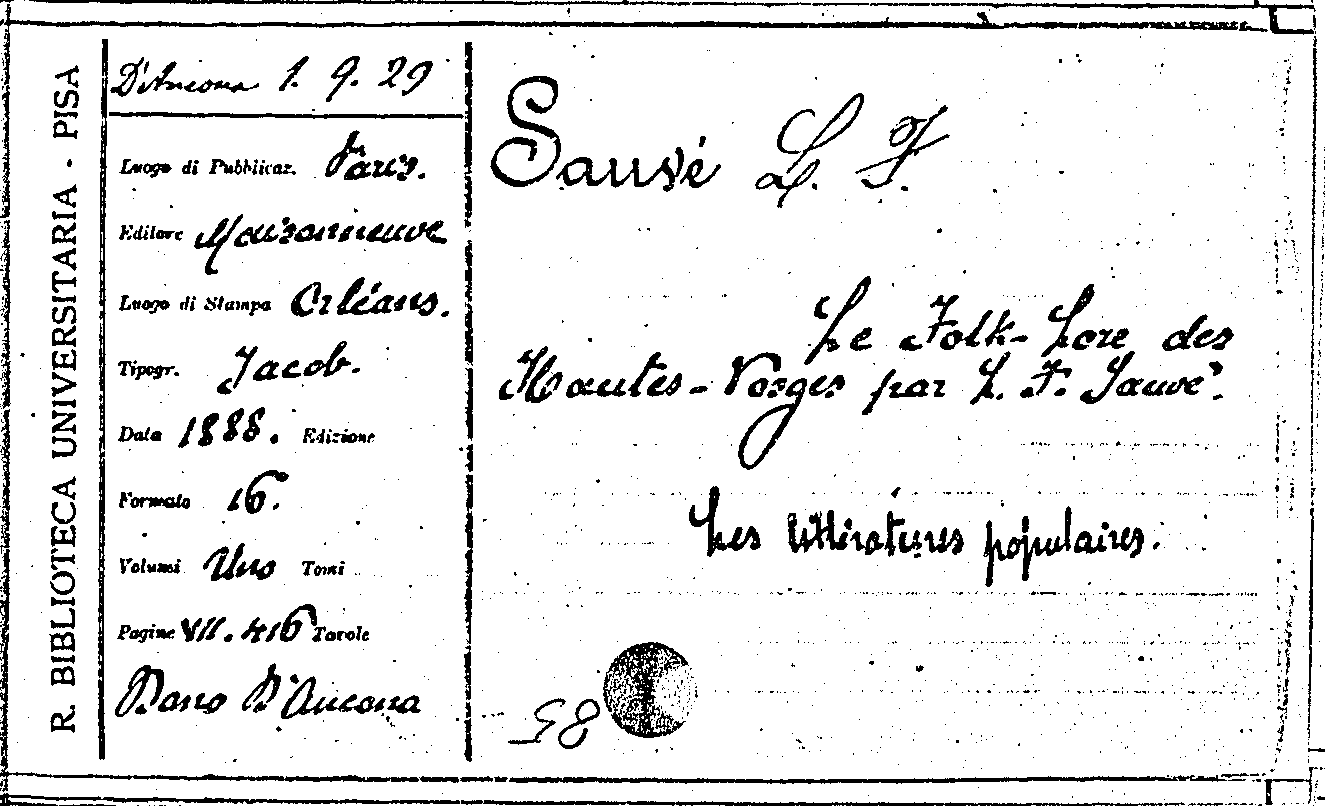 R. BIBLIOTECA UNIVERSITARIA - PISA
D'Ancona 1. 9. 29
Luogo di Pubblicaz. Paris.
Editore Maisonneuve
Luogo di Stampa Orléans.
Tipogr. Jacob.
Data 1888. Edizione
Formato 16.
Volumi Uno Tomi
Pagine VII. 416 Tavole
Dono D'Ancona
Sauvé L. F.
Le Folk-Lore des
Hautes-Vosges par L. F. Sauvé.
Les littératures populaires.
58